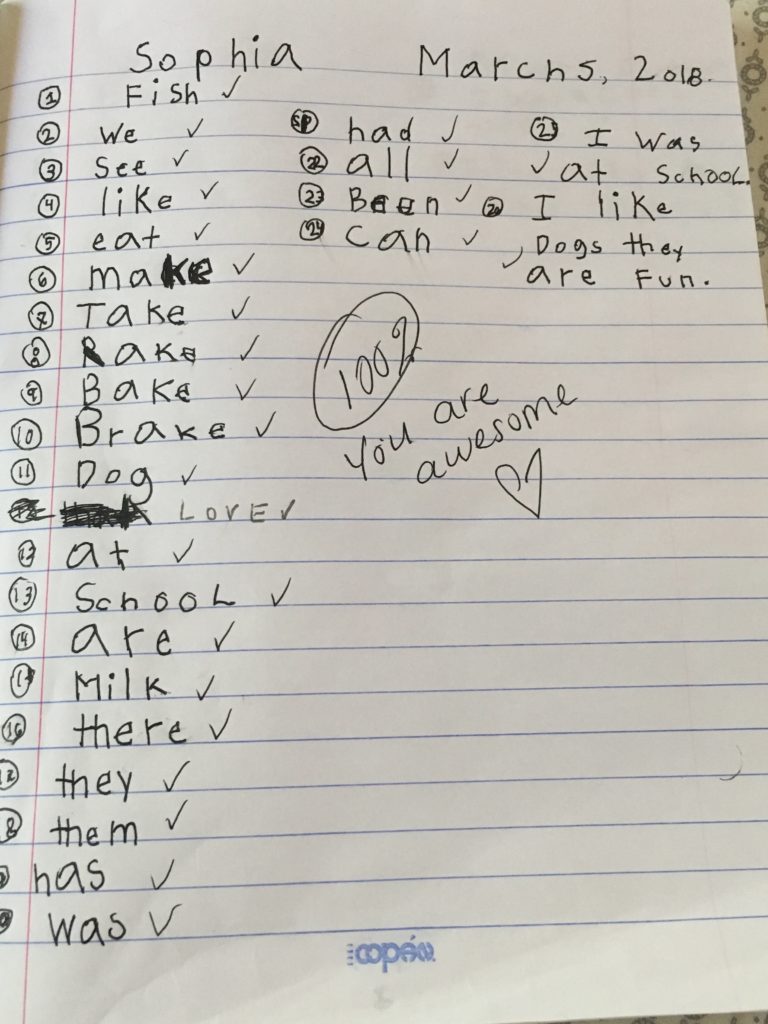 Sophia March 5, 2018.
① Fish ✓
② we ✓
③ see ✓
④ like ✓
⑤ eat ✓
⑥ make ✓
⑦ Take ✓
⑧ Rake ✓
⑨ Bake ✓
⑩ Brake ✓
⑪ Dog ✓
LOVE ✓
at ✓
⑬ SchooL ✓
⑭ are ✓
Milk ✓
⑯ there ✓
they ✓
them ✓
has ✓
was ✓
had ✓
㉒ all ✓
㉓ Been ✓
㉔ can ✓
I was
✓ at School.
I like
Dogs they
✓ are Fun.
100%
You are
awesome
♡